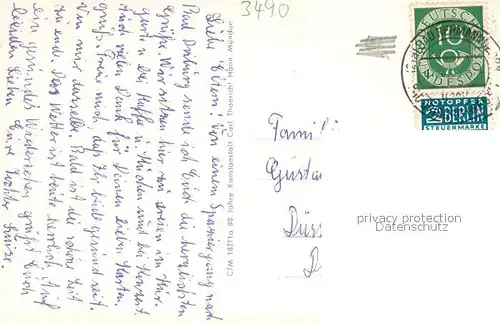 3490
Liebe Eltern! Von einem Spaziergang nach
Bad Driburg sende ich Euch die herzlichsten
Grüße. Wir sitzen hier zu dreien im Kur-
garten bei Kaffee u. Kuchen und bei Konzert.
Auch vielen Dank für Deinen lieben Karten-
gruß. Freue mich, daß Ihr beide gesund seit.
Von mir dasselbe. Bald ist die schöne Zeit
zu end. Das Wetter ist heute herrlich. Auf
ein gesundes Wiedersehen grüßt Euch
Eure Tochter
CTM 18211a 80 Jahre Kunstanstalt Carl Thoericht Hann. Münden
DEUTSCHE
10
BUNDESPOST
NOTOPFER
2 BERLIN
STEUERMARKE
Famili
Gustav
Düss
privacy protection
Datenschutz